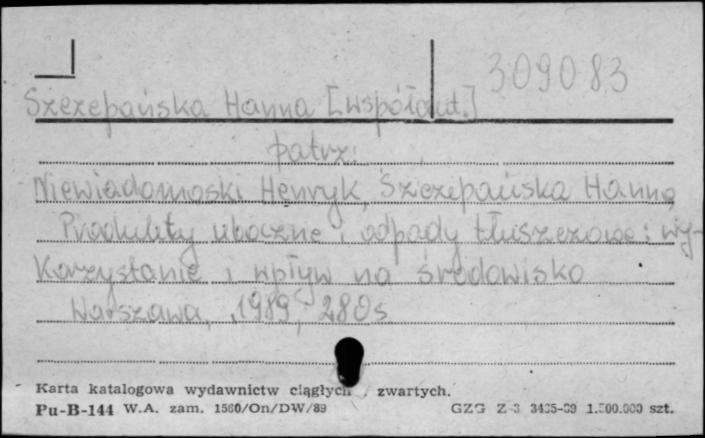 309083
Szczepańska Hanna [współaut.]
patrz:
Niewiadomski Henryk, Szczepańska Hanna
Produkty uboczne i odpady tłuszczowe: wy-
korzystanie i wpływ na środowisko
Warszawa, 1989, 280s
Karta katalogowa wydawnictw ciągłych zwartych.
Pu-B-144 W.A. zam. 1560/On/DW/89 GZG Z-3 1.500.000 szt.